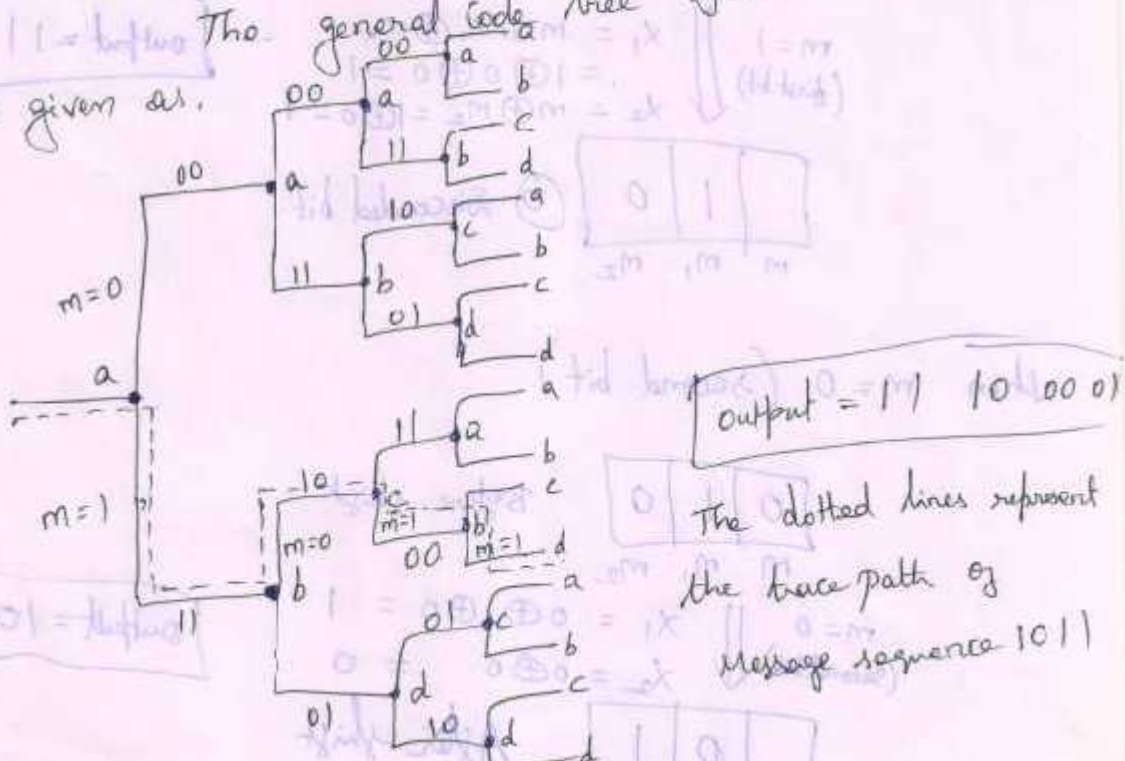 The general Code tree
given as.
00 a
00 a b
00 a c
11 b d
00 a 10 c a
b
m=0 11 b c
01 d d
a
a
11 a b
m=1 10 c c
m=1 b
m=0 00 m=1 d
11 b a
01 c b
d c
01 10 d d
output = 11 10 00 01
The dotted lines represent
the trace path of
Message sequence 1011